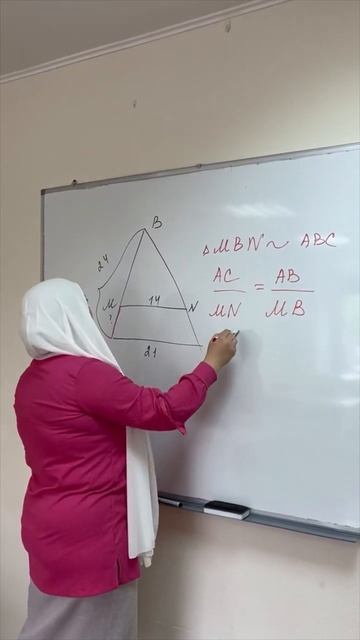 B
24
M
14
N
?
21
△MBN ~ ABC
AC / MN = AB / MB